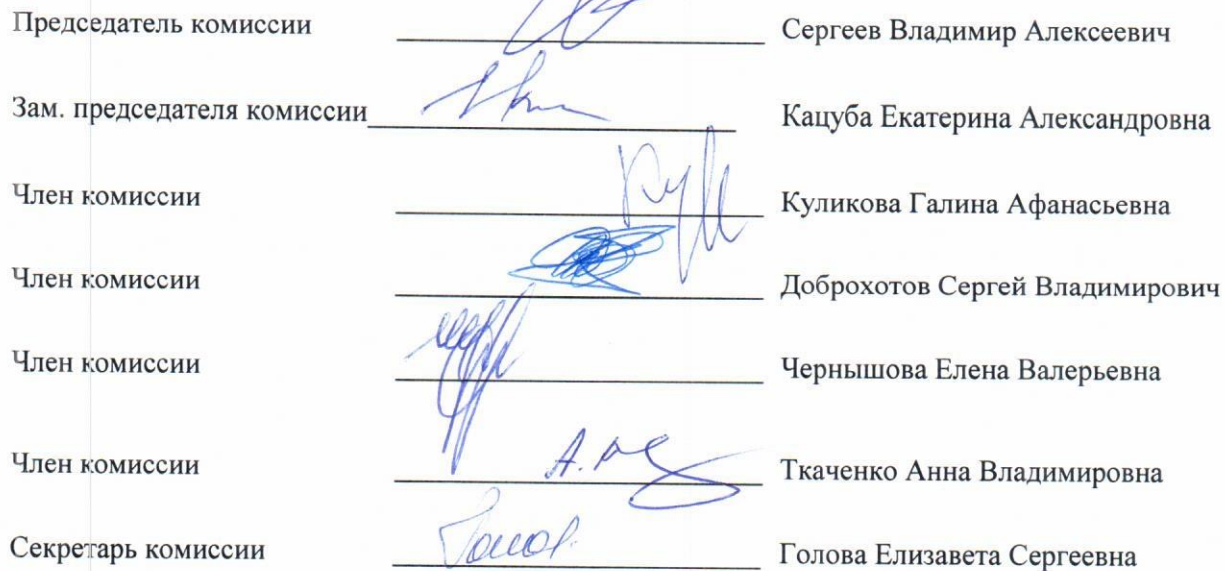 Председатель комиссии Сергеев Владимир Алексеевич
Зам. председателя комиссии Кацуба Екатерина Александровна
Член комиссии Куликова Галина Афанасьевна
Член комиссии Доброхотов Сергей Владимирович
Член комиссии Чернышова Елена Валерьевна
Член комиссии Ткаченко Анна Владимировна
Секретарь комиссии Голова Елизавета Сергеевна